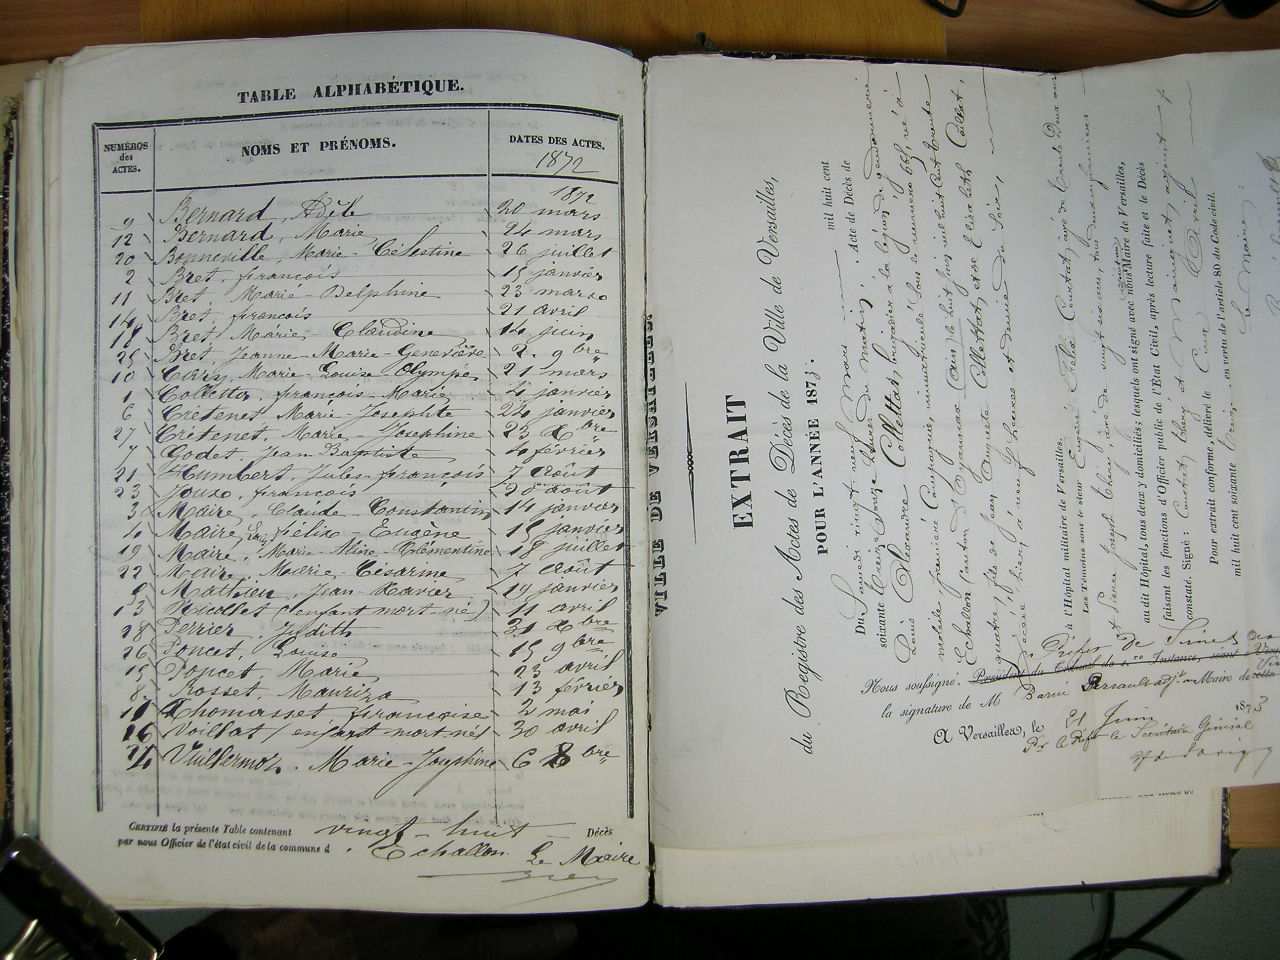 TABLE ALPHABÉTIQUE.
NUMÉROS des ACTES.
NOMS ET PRÉNOMS.
DATES DES ACTES.
1872
1872
9 Bernard, Adèle 20 mars
12 Bernard, Marie 24 mars
20 Bonneville, Marie-Célestine 26 juillet
2 Bret, françois 15 janvier
11 Bret, Marie-Delphine 23 mars
14 Bret, françois 21 avril
18 Bret, Marie, Claudine 14 juin
25 Bret, Jeanne-Marie-Geneviève 2. 9bre
10 Cary, Marie-Louise Olympe 21 mars
1 Collettaz, françois-Marie 4 janvier
6 Crétenet, Marie-Josephte 24 janvier
27 Crétenet, Marie-Josephine 23 Xbre
7 Godet, Jean Baptiste 4 février
21 Humbert, Jules-françois 7 août
23 Joux, françois 28 août
3 Maire, Claude-Constantin 14 janvier
4 Maire, félix-Eugène 15 janvier
19 Maire, Marie-Aline-Clémentine 18 juillet
22 Maire, Marie-Césarine 7 août
5 Mathieu, Jean-Xavier 19 janvier
13 Nicollet (enfant mort né) 11 avril
28 Perrier, Judith 31 Xbre
26 Poncet, Louise 15 9bre
15 Poncet, Marie 23 avril
8 Rosset, Mauriza 13 février
17 Thomasset, françoise 2 mai
16 Voillat (enfant mort né) 30 avril
24 Vuillermoz, Marie-Josephine 6 8bre
CERTIFIÉ la présente Table contenant vingt-huit Décès
par nous Officier de l'état civil de la commune d'Echallon
Le Maire
VILLE DE VERSAILLES.
EXTRAIT
du Registre des Actes de Décès de la Ville de Versailles,
POUR L'ANNÉE 1873.
Du Samedi vingt neuf Mars mil huit cent
soixante treize, onze heures du matin. Acte de Décès de
Louis Alexandre Collettaz, brigadier à la légion de gendarmerie
mobile, première Compagnie, immatriculé sous le numéro 661, né à
Echallon, canton d'Oyonnax (Ain) le huit juin mil huit cent trente
quatre, fils de Jean Auguste Collettaz, et de Elisabeth Caillat,
Décédé hier, à neuf heures et demie du soir,
à l'Hôpital militaire de Versailles.
Les Témoins sont le sieur Eugène Félix Coustat, âgé de trente Deux ans
et Pierre Joseph Théry, âgé de vingt six ans, tous deux infirmiers
au dit Hôpital, tous deux y domiciliés; lesquels ont signé avec nous Maire de Versailles,
faisant les fonctions d'Officier public de l'État Civil, après lecture faite et le Décès
constaté. Signé: Coustat, Théry et
Pour extrait conforme, délivré le en vertu de l'article 80 du Code civil.
mil huit cent soixante treize
Le Maire,
Nous soussigné, Préfet de Seine et Oise
Président du Tribunal de 1re Instance, séant
la signature de M Barué Perrault adjt au Maire de
A Versailles, le 21 Juin 1873
Pr le Préfet le Secrétaire Général